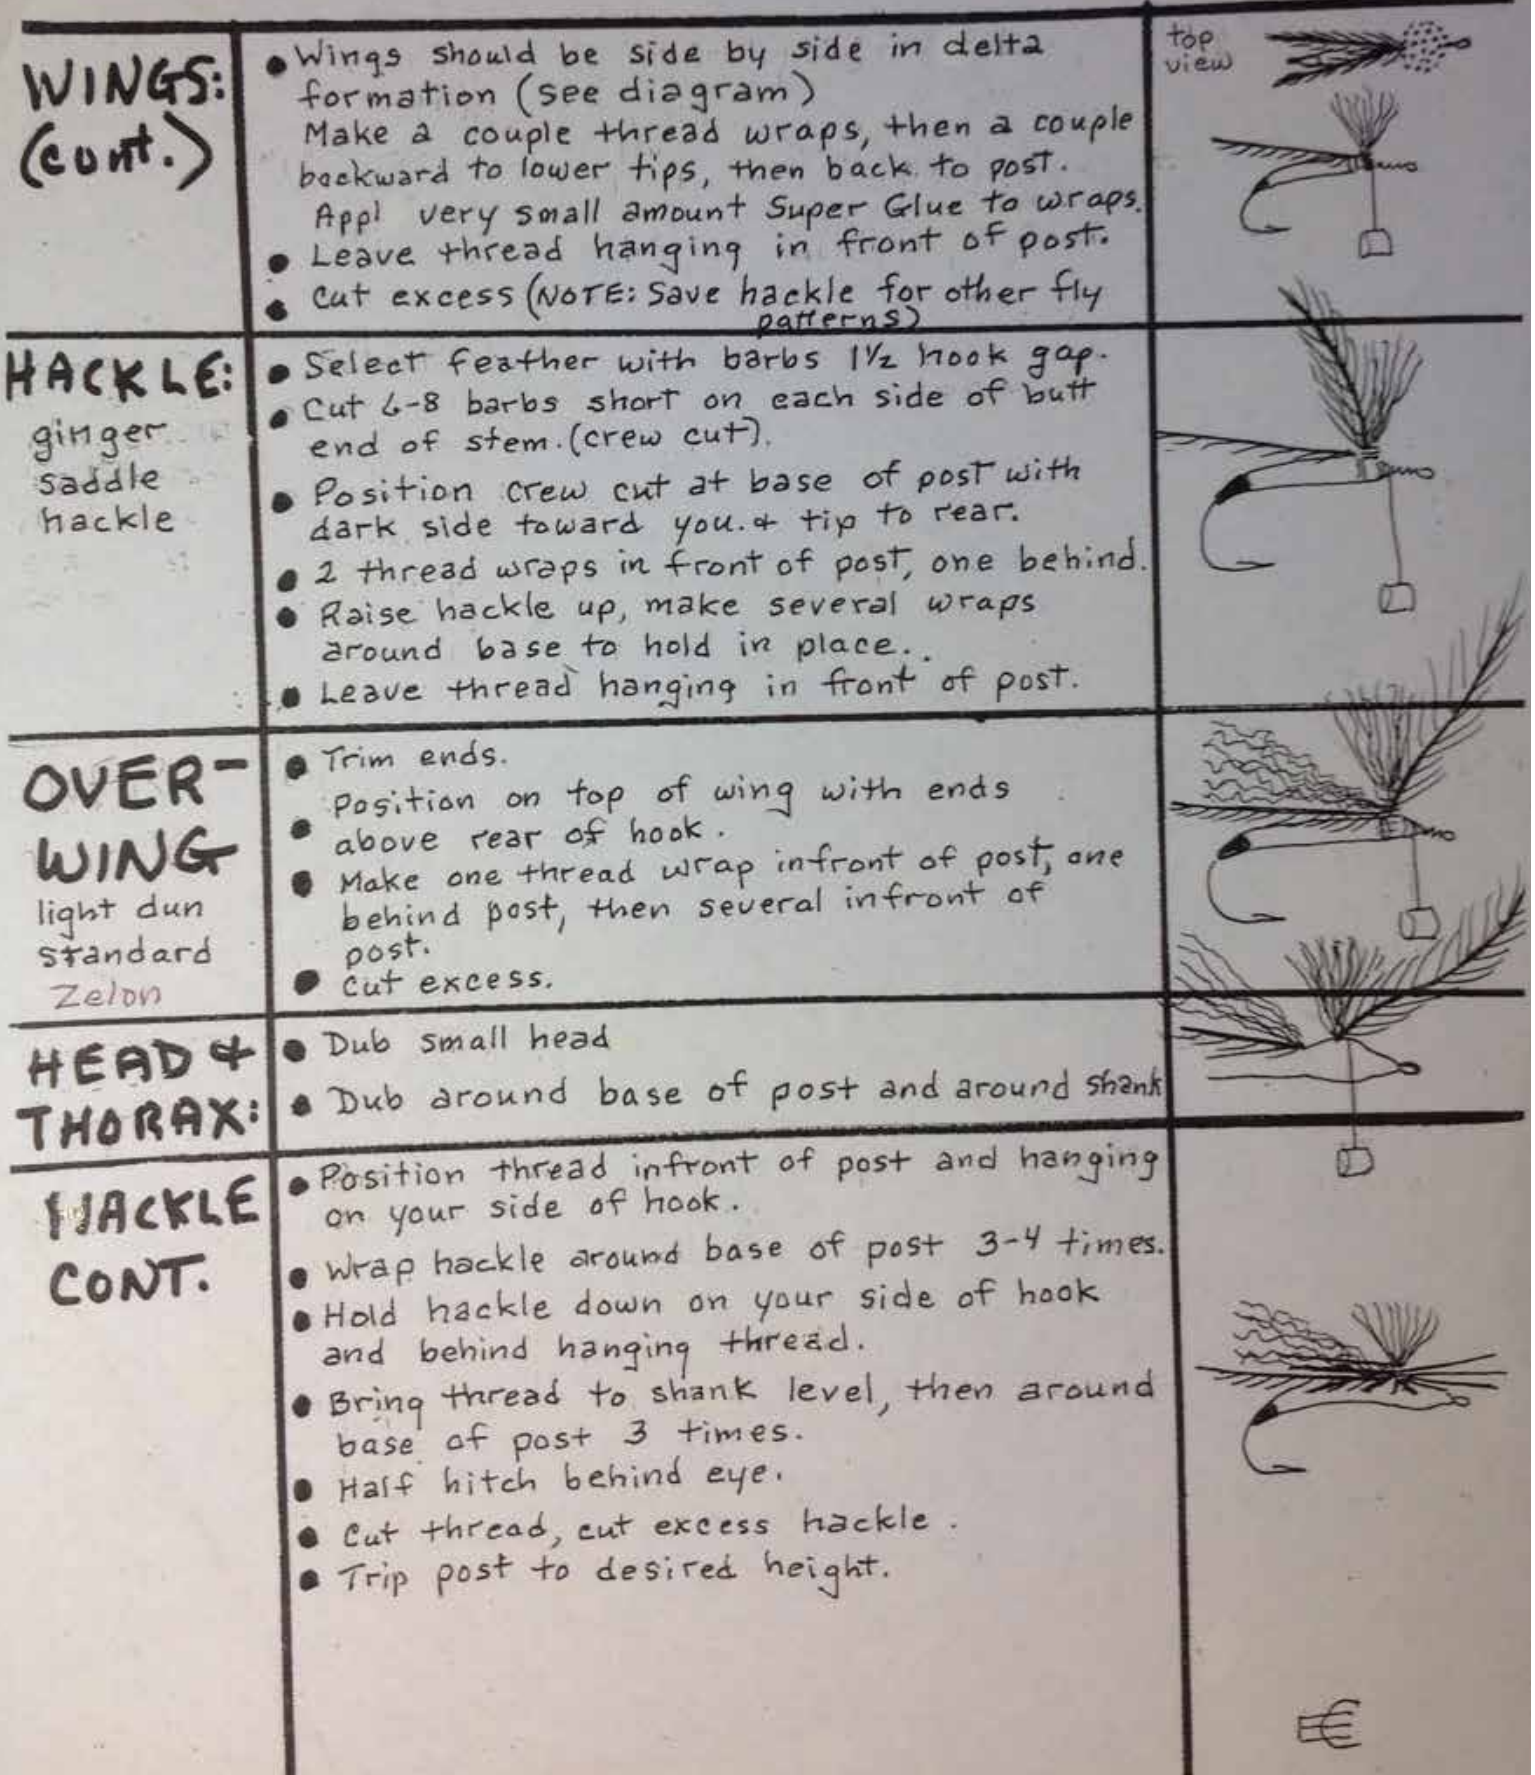 WINGS:
(cont.)
• Wings should be side by side in delta
formation (see diagram)
Make a couple thread wraps, then a couple
backward to lower tips, then back to post.
Appl very small amount Super Glue to wraps.
• Leave thread hanging in front of post.
• Cut excess (NOTE: Save hackle for other fly
patterns)
top
view
HACKLE:
ginger
saddle
hackle
• Select feather with barbs 1½ hook gap.
• Cut 6-8 barbs short on each side of butt
end of stem. (crew cut).
• Position crew cut at base of post with
dark side toward you. & tip to rear.
• 2 thread wraps in front of post, one behind.
• Raise hackle up, make several wraps
around base to hold in place..
• Leave thread hanging in front of post.
OVER-
WING
light dun
standard
Zelon
• Trim ends.
• Position on top of wing with ends
above rear of hook.
• Make one thread wrap infront of post, one
behind post, then several infront of
post.
• Cut excess.
HEAD &
THORAX:
• Dub small head
• Dub around base of post and around shank
HACKLE
CONT.
• Position thread infront of post and hanging
on your side of hook.
• Wrap hackle around base of post 3-4 times.
• Hold hackle down on your side of hook
and behind hanging thread.
• Bring thread to shank level, then around
base of post 3 times.
• Half hitch behind eye.
• Cut thread, cut excess hackle.
• Trip post to desired height.